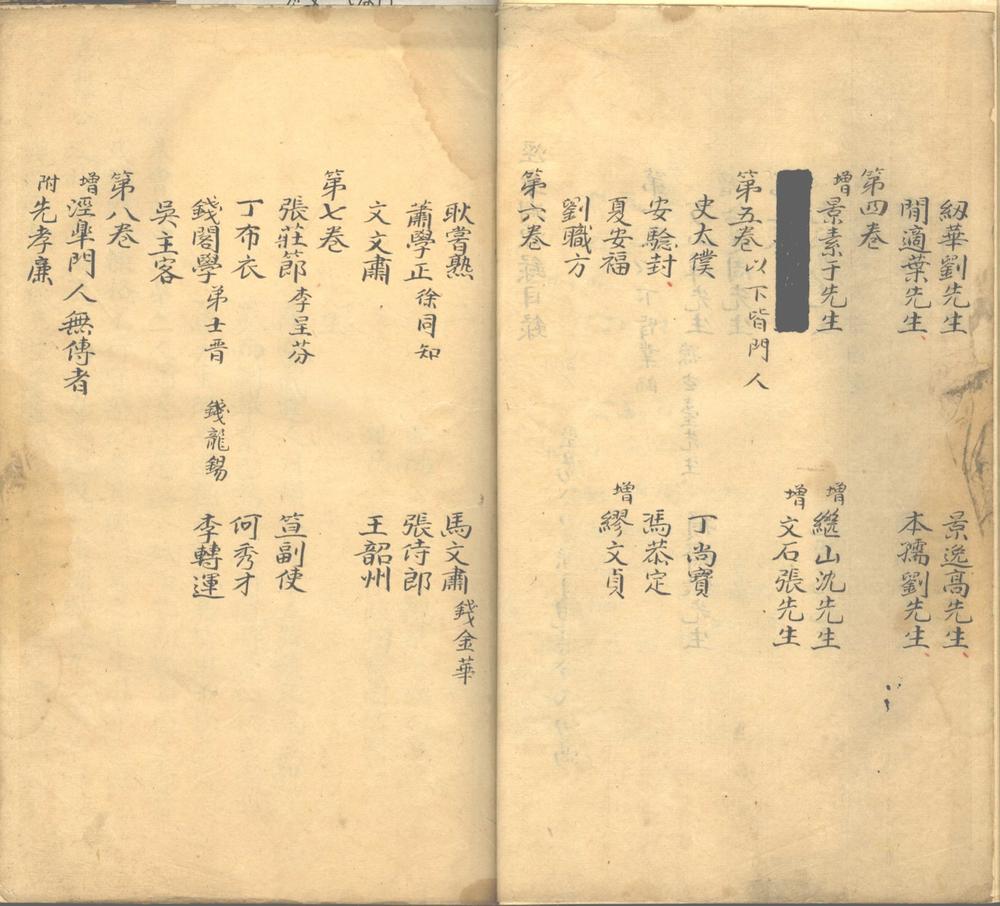 紉華劉先生　景逸高先生
閒適葉先生　本孺劉先生
第四卷
增景素于先生　增繼山沈先生
增文石張先生
第五卷以下皆門人
史太僕　丁尚寶
安驗封　馮恭定
夏安福　增繆文貞
劉職方
第六卷
耿嘗熟　馬文肅錢金華
蕭學正徐同知　張侍郎
文文肅　王韶州
第七卷
張莊節李呈芬　笪副使
丁布衣　何秀才
錢閣學弟士晋　錢龍錫　李轉運
吳主客
第八卷
增涇臯門人無傳者
附先孝廉